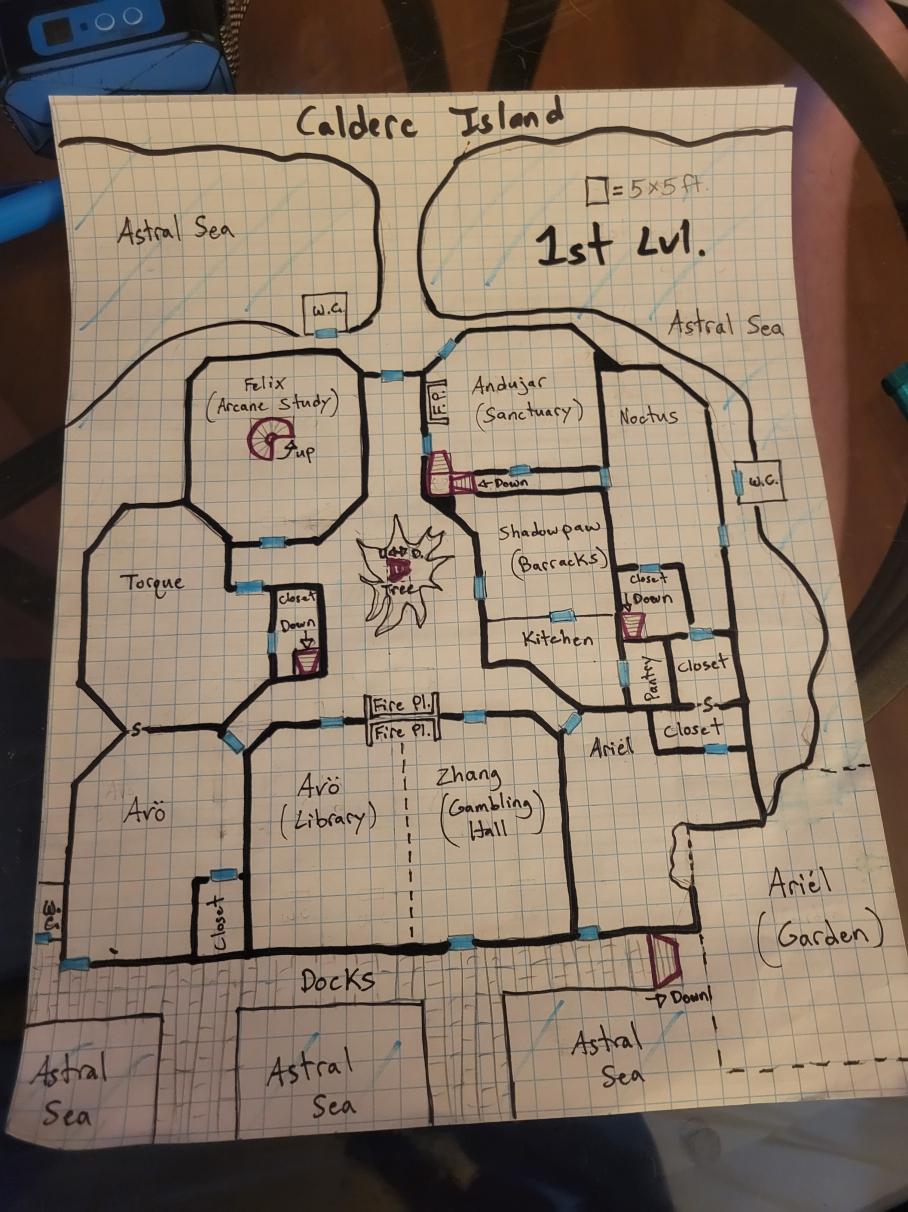 Caldere Island
= 5×5 ft.
1st Lvl.
Astral Sea
W.C.
Astral Sea
Felix
(Arcane Study)
up
F.P.
Andujar
(Sanctuary)
Noctus
Down
W.C.
Shadowpaw
(Barracks)
Tree
Torque
Closet
Down
Closet
Down
Kitchen
Pantry
Closet
S
S
Closet
Fire Pl.
Fire Pl.
Ariél
Avö
Avö
(Library)
Zhang
(Gambling
Hall)
Closet
W.C.
Ariél
(Garden)
Docks
Down
Astral
Sea
Astral
Sea
Astral
Sea